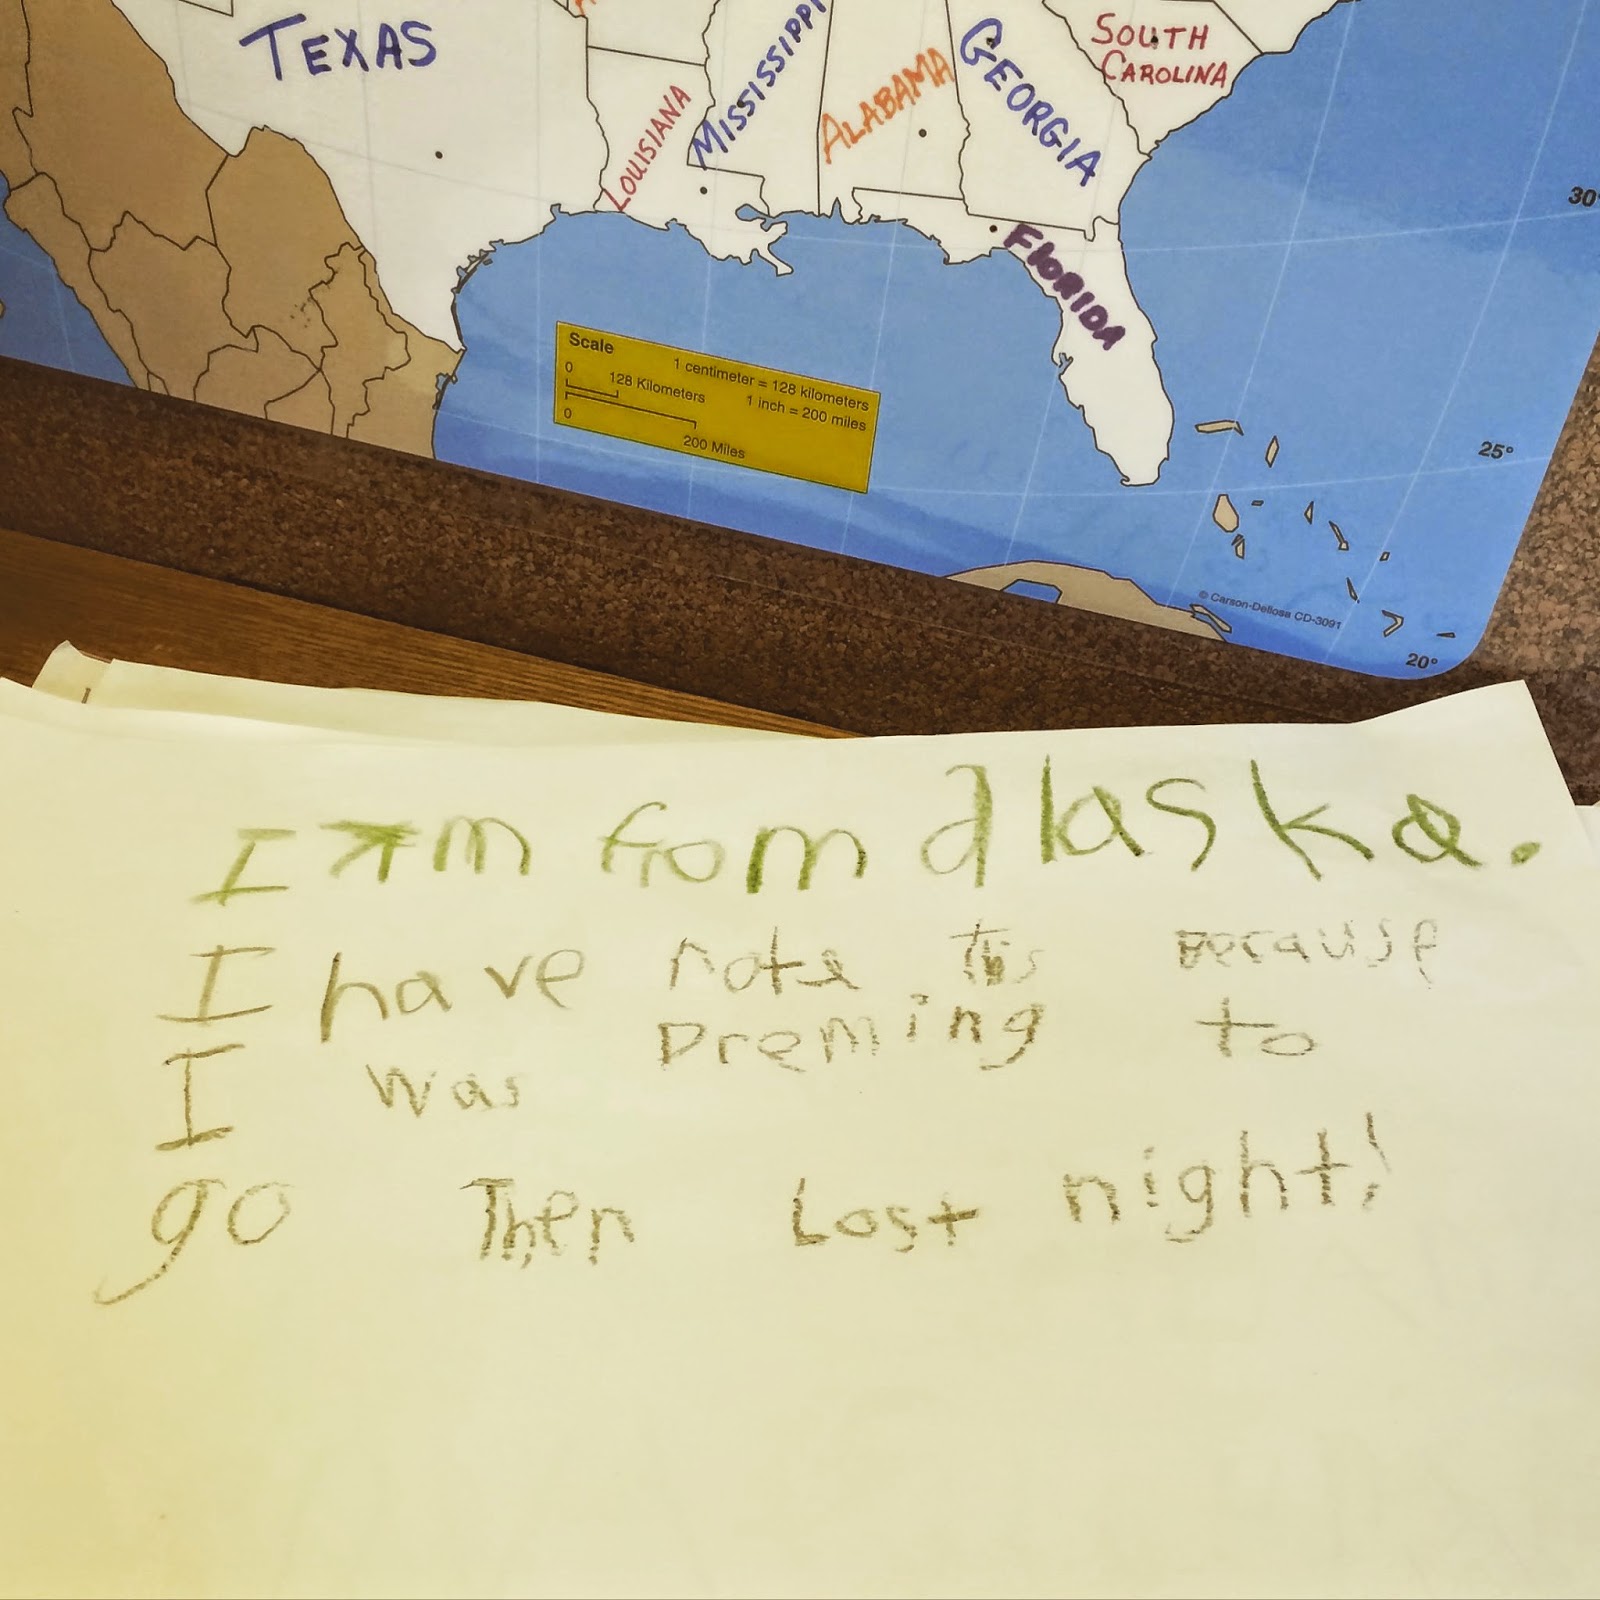 TEXAS
LOUISIANA
MISSISSIPPI
ALABAMA
GEORGIA
SOUTH
CAROLINA
FLORIDA
30°
Scale
1 centimeter = 128 kilometers
0
128 Kilometers
1 inch = 200 miles
0
200 Miles
25°
© Carson-Dellosa CD-3091
20°
I Am from Alaska.
I have rote This Because
I was Dreming to
go Then Lost night!